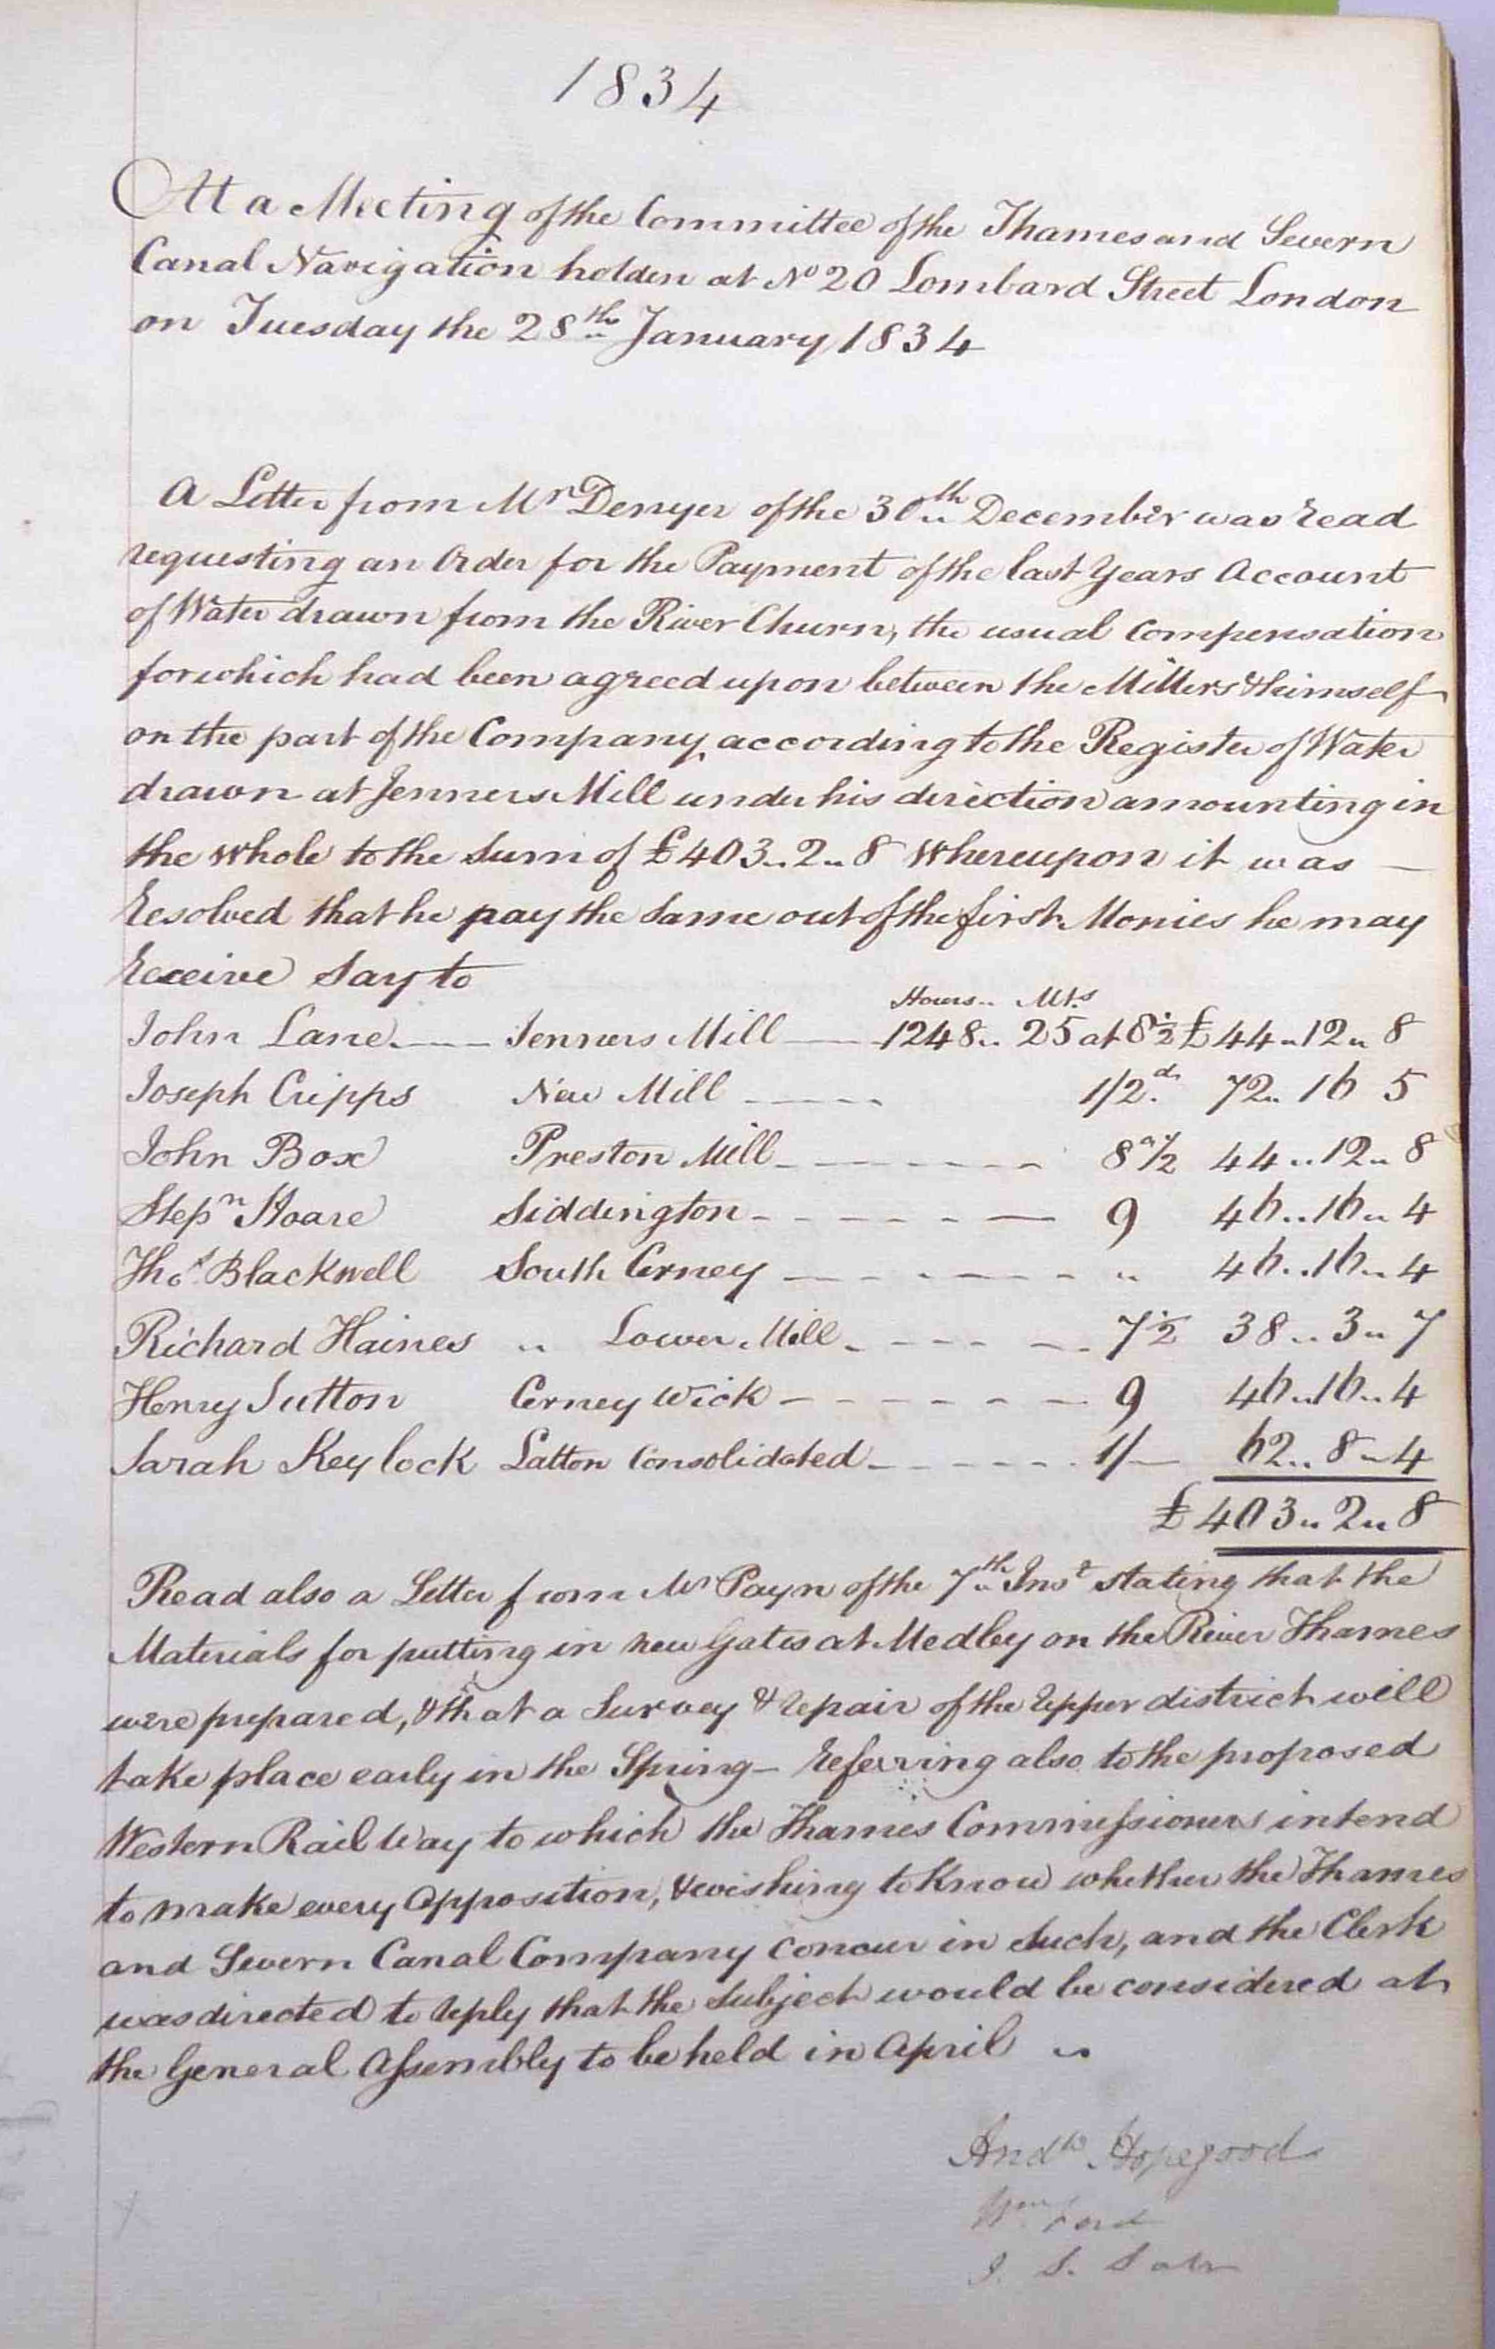 1834
At a Meeting of the Committee of the Thames and Severn
Canal Navigation holden at No 20 Lombard Street London
on Tuesday the 28th January 1834
A Letter from Mr Denyer of the 30th December was read
requesting an Order for the Payment of the last Years Account
of Water drawn from the River Churn, the usual Compensation
for which had been agreed upon between the Millers & himself
on the part of the Company, according to the Register of Water
drawn at Jenners Mill under his direction amounting in
the whole to the Sum of £403..2..8 Whereupon it was —
Resolved that he pay the Same out of the first Monies he may
Receive Say to
Hours.. Mts
John Lane.—— Jenners Mill —— 1248.. 25 at 8½ £44..12..8
Joseph Cripps New Mill ——— 1/2.d 72.. 16 5
John Box Preston Mill ------ 8d½ 44..12..8
Stepn Hoare Siddington ------ 9 46..16..4
Thos. Blackwell South Cerney ------ " 46..16..4
Richard Haines " Lower Mill ------ 7½ 38..3..7
Henry Sutton Cerney Wick ------ 9 46..16..4
Sarah Keylock Latton Consolidated ------ 1/— 62..8..4
£403..2..8
Read also a Letter from Mr Payn of the 7th Inst stating that the
Materials for putting in new Gates at Medley on the River Thames
were prepared, & that a Survey & repair of the Upper district will
take place early in the Spring – referring also to the proposed
Western Rail Way to which the Thames Commissioners intend
to make every Opposition, & wishing to Know whether the Thames
and Severn Canal Company Concur in Such, and the Clerk
was directed to reply that the Subject would be considered at
the General Assembly to be held in April "
Andw Hopegood
Wm Ford
J. S. Salt